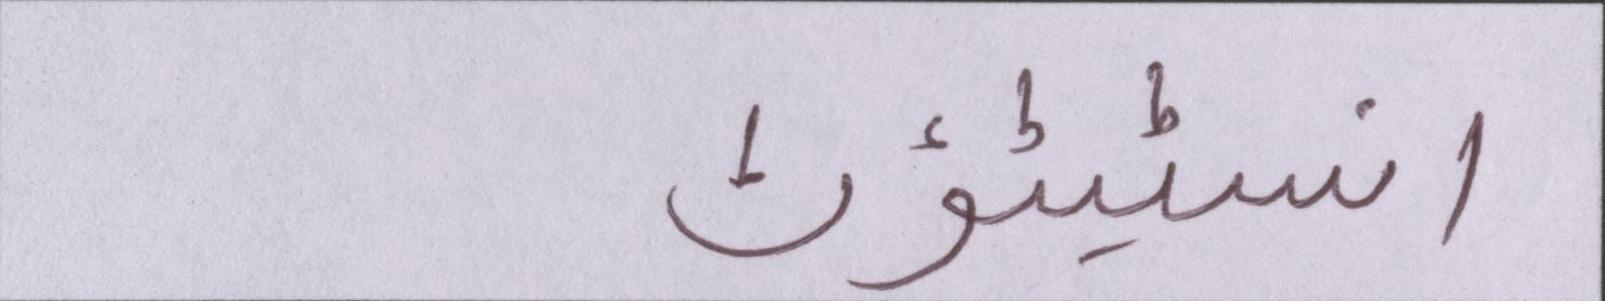 انسٹیٹؤٹ